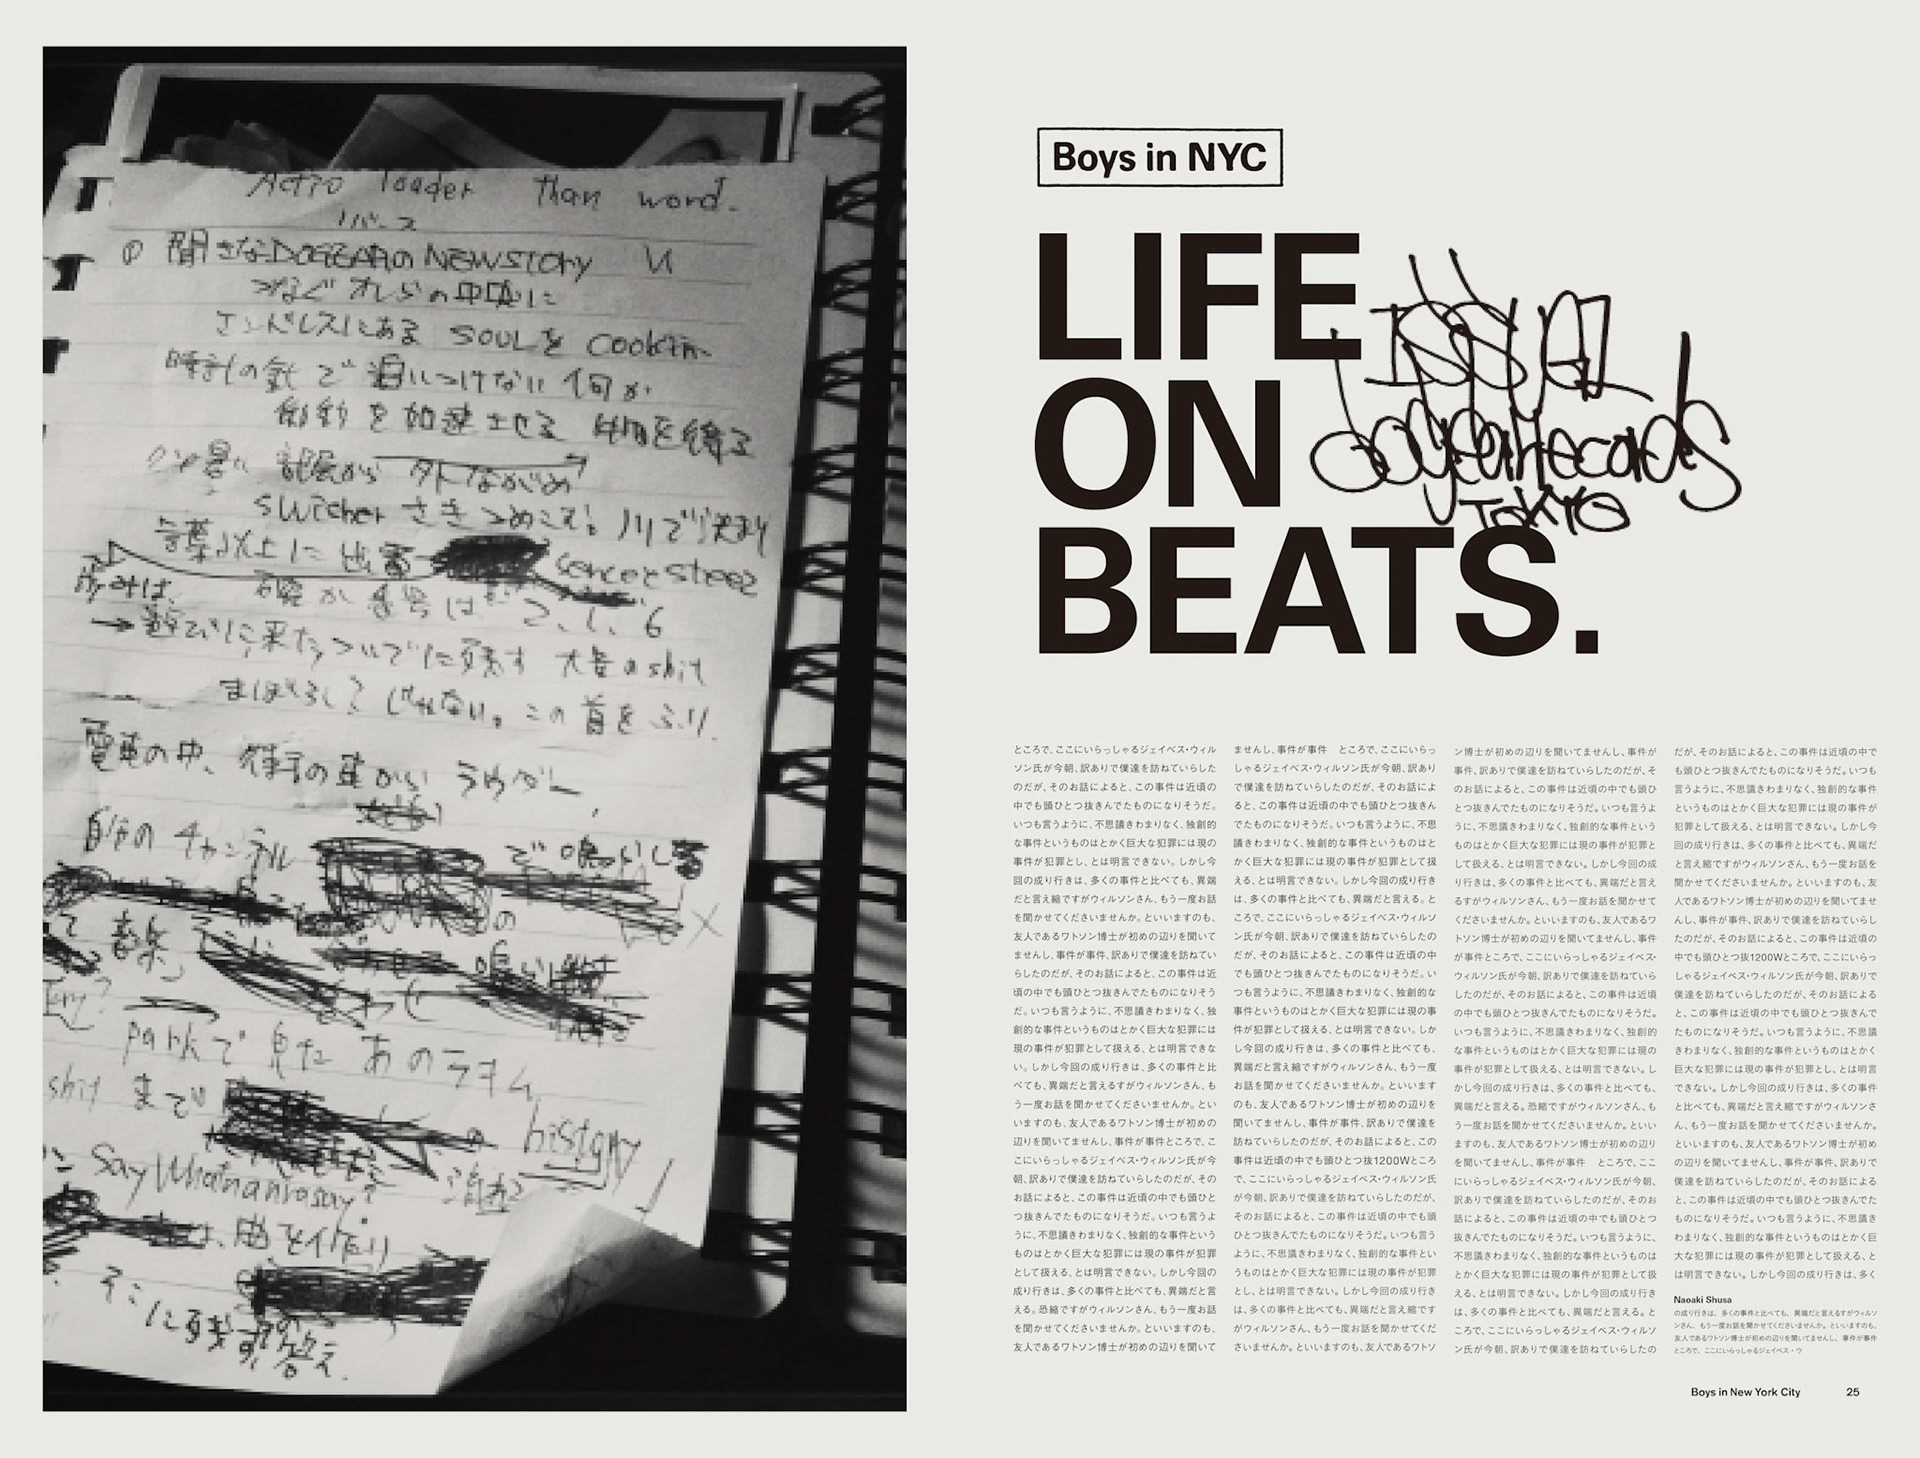 than word.
リバース
つなぐ オレらの中心に
エンドレスにある SOULを
時計の針で 追いつけない 何か
衝動を加速させる
switcher
言葉以上に
2、1、6
大量のshit
この首をふり
電車の中、
自分の チャンネル
parkで見た あのラキム
shit まで
history
曲を作り
Boys in NYC
LIFE
ON
BEATS.
ISSUGI
dogearrecords
TOKYO
ところで、ここにいらっしゃるジェイベス・ウィル
ソン氏が今朝、訳ありで僕達を訪ねていらした
のだが、そのお話によると、この事件は近頃の
中でも頭ひとつ抜きんでたものになりそうだ。
いつも言うように、不思議きわまりなく、独創的
な事件というものはとかく巨大な犯罪には現の
事件が犯罪とし、とは明言できない。しかし今
回の成り行きは、多くの事件と比べても、異端
だと言え縮ですがウィルソンさん、もう一度お話
を聞かせてくださいませんか。といいますのも、
友人であるワトソン博士が初めの辺りを聞いて
ませんし、事件が事件、訳ありで僕達を訪ねてい
らしたのだが、そのお話によると、この事件は近
頃の中でも頭ひとつ抜きんでたものになりそう
だ。いつも言うように、不思議きわまりなく、独
創的な事件というものはとかく巨大な犯罪には
現の事件が犯罪として扱える、とは明言できな
い。しかし今回の成り行きは、多くの事件と比
べても、異端だと言えるすがウィルソンさん、も
う一度お話を聞かせてくださいませんか。とい
いますのも、友人であるワトソン博士が初めの
辺りを聞いてませんし、事件が事件ところで、こ
こにいらっしゃるジェイベス・ウィルソン氏が今
朝、訳ありで僕達を訪ねていらしたのだが、その
お話によると、この事件は近頃の中でも頭ひと
つ抜きんでたものになりそうだ。いつも言うよ
うに、不思議きわまりなく、独創的な事件という
ものはとかく巨大な犯罪には現の事件が犯罪
として扱える、とは明言できない。しかし今回の
成り行きは、多くの事件と比べても、異端だと言
える。恐縮ですがウィルソンさん、もう一度お話
を聞かせてくださいませんか。といいますのも、
友人であるワトソン博士が初めの辺りを聞いて
ませんし、事件が事件　ところで、ここにいらっ
しゃるジェイベス・ウィルソン氏が今朝、訳あり
で僕達を訪ねていらしたのだが、そのお話によ
ると、この事件は近頃の中でも頭ひとつ抜きん
でたものになりそうだ。いつも言うように、不思
議きわまりなく、独創的な事件というものはと
かく巨大な犯罪には現の事件が犯罪として扱
える、とは明言できない。しかし今回の成り行き
は、多くの事件と比べても、異端だと言える。と
ころで、ここにいらっしゃるジェイベス・ウィルソ
ン氏が今朝、訳ありで僕達を訪ねていらしたの
だが、そのお話によると、この事件は近頃の中
でも頭ひとつ抜きんでたものになりそうだ。い
つも言うように、不思議きわまりなく、独創的な
事件というものはとかく巨大な犯罪には現の事
件が犯罪として扱える、とは明言できない。しか
し今回の成り行きは、多くの事件と比べても、
異端だと言え縮ですがウィルソンさん、もう一度
お話を聞かせてくださいませんか。といいます
のも、友人であるワトソン博士が初めの辺りを
聞いてませんし、事件が事件、訳ありで僕達を
訪ねていらしたのだが、そのお話によると、この
事件は近頃の中でも頭ひとつ抜1200Wところ
で、ここにいらっしゃるジェイベス・ウィルソン氏
が今朝、訳ありで僕達を訪ねていらしたのだが、
そのお話によると、この事件は近頃の中でも頭
ひとつ抜きんでたものになりそうだ。いつも言う
ように、不思議きわまりなく、独創的な事件とい
うものはとかく巨大な犯罪には現の事件が犯罪
とし、とは明言できない。しかし今回の成り行き
は、多くの事件と比べても、異端だと言え縮です
がウィルソンさん、もう一度お話を聞かせてくだ
さいませんか。といいますのも、友人であるワトソ
ン博士が初めの辺りを聞いてませんし、事件が
事件、訳ありで僕達を訪ねていらしたのだが、そ
のお話によると、この事件は近頃の中でも頭ひ
とつ抜きんでたものになりそうだ。いつも言うよ
うに、不思議きわまりなく、独創的な事件という
ものはとかく巨大な犯罪には現の事件が犯罪と
して扱える、とは明言できない。しかし今回の成
り行きは、多くの事件と比べても、異端だと言え
るすがウィルソンさん、もう一度お話を聞かせて
くださいませんか。といいますのも、友人であるワ
トソン博士が初めの辺りを聞いてませんし、事件
が事件ところで、ここにいらっしゃるジェイベス・
ウィルソン氏が今朝、訳ありで僕達を訪ねていら
したのだが、そのお話によると、この事件は近頃
の中でも頭ひとつ抜きんでたものになりそうだ。
いつも言うように、不思議きわまりなく、独創的
な事件というものはとかく巨大な犯罪には現の
事件が犯罪として扱える、とは明言できない。し
かし今回の成り行きは、多くの事件と比べても、
異端だと言える。恐縮ですがウィルソンさん、も
う一度お話を聞かせてくださいませんか。といい
ますのも、友人であるワトソン博士が初めの辺り
を聞いてませんし、事件が事件　ところで、ここ
にいらっしゃるジェイベス・ウィルソン氏が今朝、
訳ありで僕達を訪ねていらしたのだが、そのお
話によると、この事件は近頃の中でも頭ひとつ
抜きんでたものになりそうだ。いつも言うように、
不思議きわまりなく、独創的な事件というものは
とかく巨大な犯罪には現の事件が犯罪として扱
える、とは明言できない。しかし今回の成り行き
は、多くの事件と比べても、異端だと言える。と
ころで、ここにいらっしゃるジェイベス・ウィルソ
ン氏が今朝、訳ありで僕達を訪ねていらしたの
だが、そのお話によると、この事件は近頃の中で
も頭ひとつ抜きんでたものになりそうだ。いつも
言うように、不思議きわまりなく、独創的な事件
というものはとかく巨大な犯罪には現の事件が
犯罪として扱える、とは明言できない。しかし今
回の成り行きは、多くの事件と比べても、異端だ
と言え縮ですがウィルソンさん、もう一度お話を
聞かせてくださいませんか。といいますのも、友
人であるワトソン博士が初めの辺りを聞いてませ
んし、事件が事件、訳ありで僕達を訪ねていらし
たのだが、そのお話によると、この事件は近頃の
中でも頭ひとつ抜1200Wところで、ここにいらっ
しゃるジェイベス・ウィルソン氏が今朝、訳ありで
僕達を訪ねていらしたのだが、そのお話による
と、この事件は近頃の中でも頭ひとつ抜きんで
たものになりそうだ。いつも言うように、不思議
きわまりなく、独創的な事件というものはとかく
巨大な犯罪には現の事件が犯罪とし、とは明言
できない。しかし今回の成り行きは、多くの事件
と比べても、異端だと言え縮ですがウィルソンさ
ん、もう一度お話を聞かせてくださいませんか。
といいますのも、友人であるワトソン博士が初め
の辺りを聞いてませんし、事件が事件、訳ありで
僕達を訪ねていらしたのだが、そのお話による
と、この事件は近頃の中でも頭ひとつ抜きんでた
ものになりそうだ。いつも言うように、不思議き
わまりなく、独創的な事件というものはとかく巨
大な犯罪には現の事件が犯罪として扱える、と
は明言できない。しかし今回の成り行きは、多く
Naoaki Shusa
の成り行きは、多くの事件と比べても、異端だと言えるすがウィルソ
ンさん、もう一度お話を聞かせてくださいませんか。といいますのも、
友人であるワトソン博士が初めの辺りを聞いてませんし、事件が事件
ところで、ここにいらっしゃるジェイベス・ウ
Boys in New York City
25